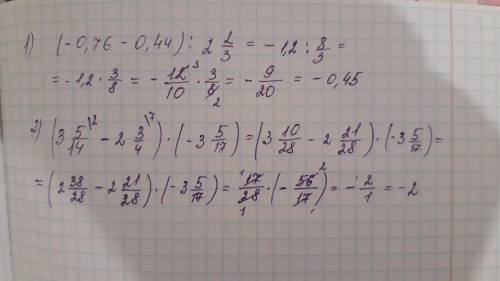 1) (-0,76 - 0,44) : 2 2/3 = -1,2 : 8/3 =
= -1,2 · 3/8 = - 12³/10 · 3/8₂ = - 9/20 = -0,45
2) (3 5/14 \2 - 2 3/4 \7) · (-3 5/17) = (3 10/28 - 2 21/28) · (-3 5/17) =
= (2 38/28 - 2 21/28) · (-3 5/17) = ¹17/28₁ · (- 56²/17₁) = - 2/1 = -2